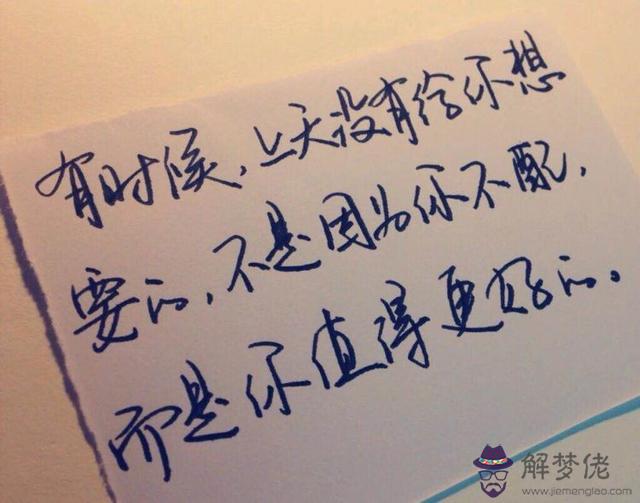 有时候，上天没有给你想
要的，不是因为你不配，
而是你值得更好的。
解梦佬
www.jiemenglao.com